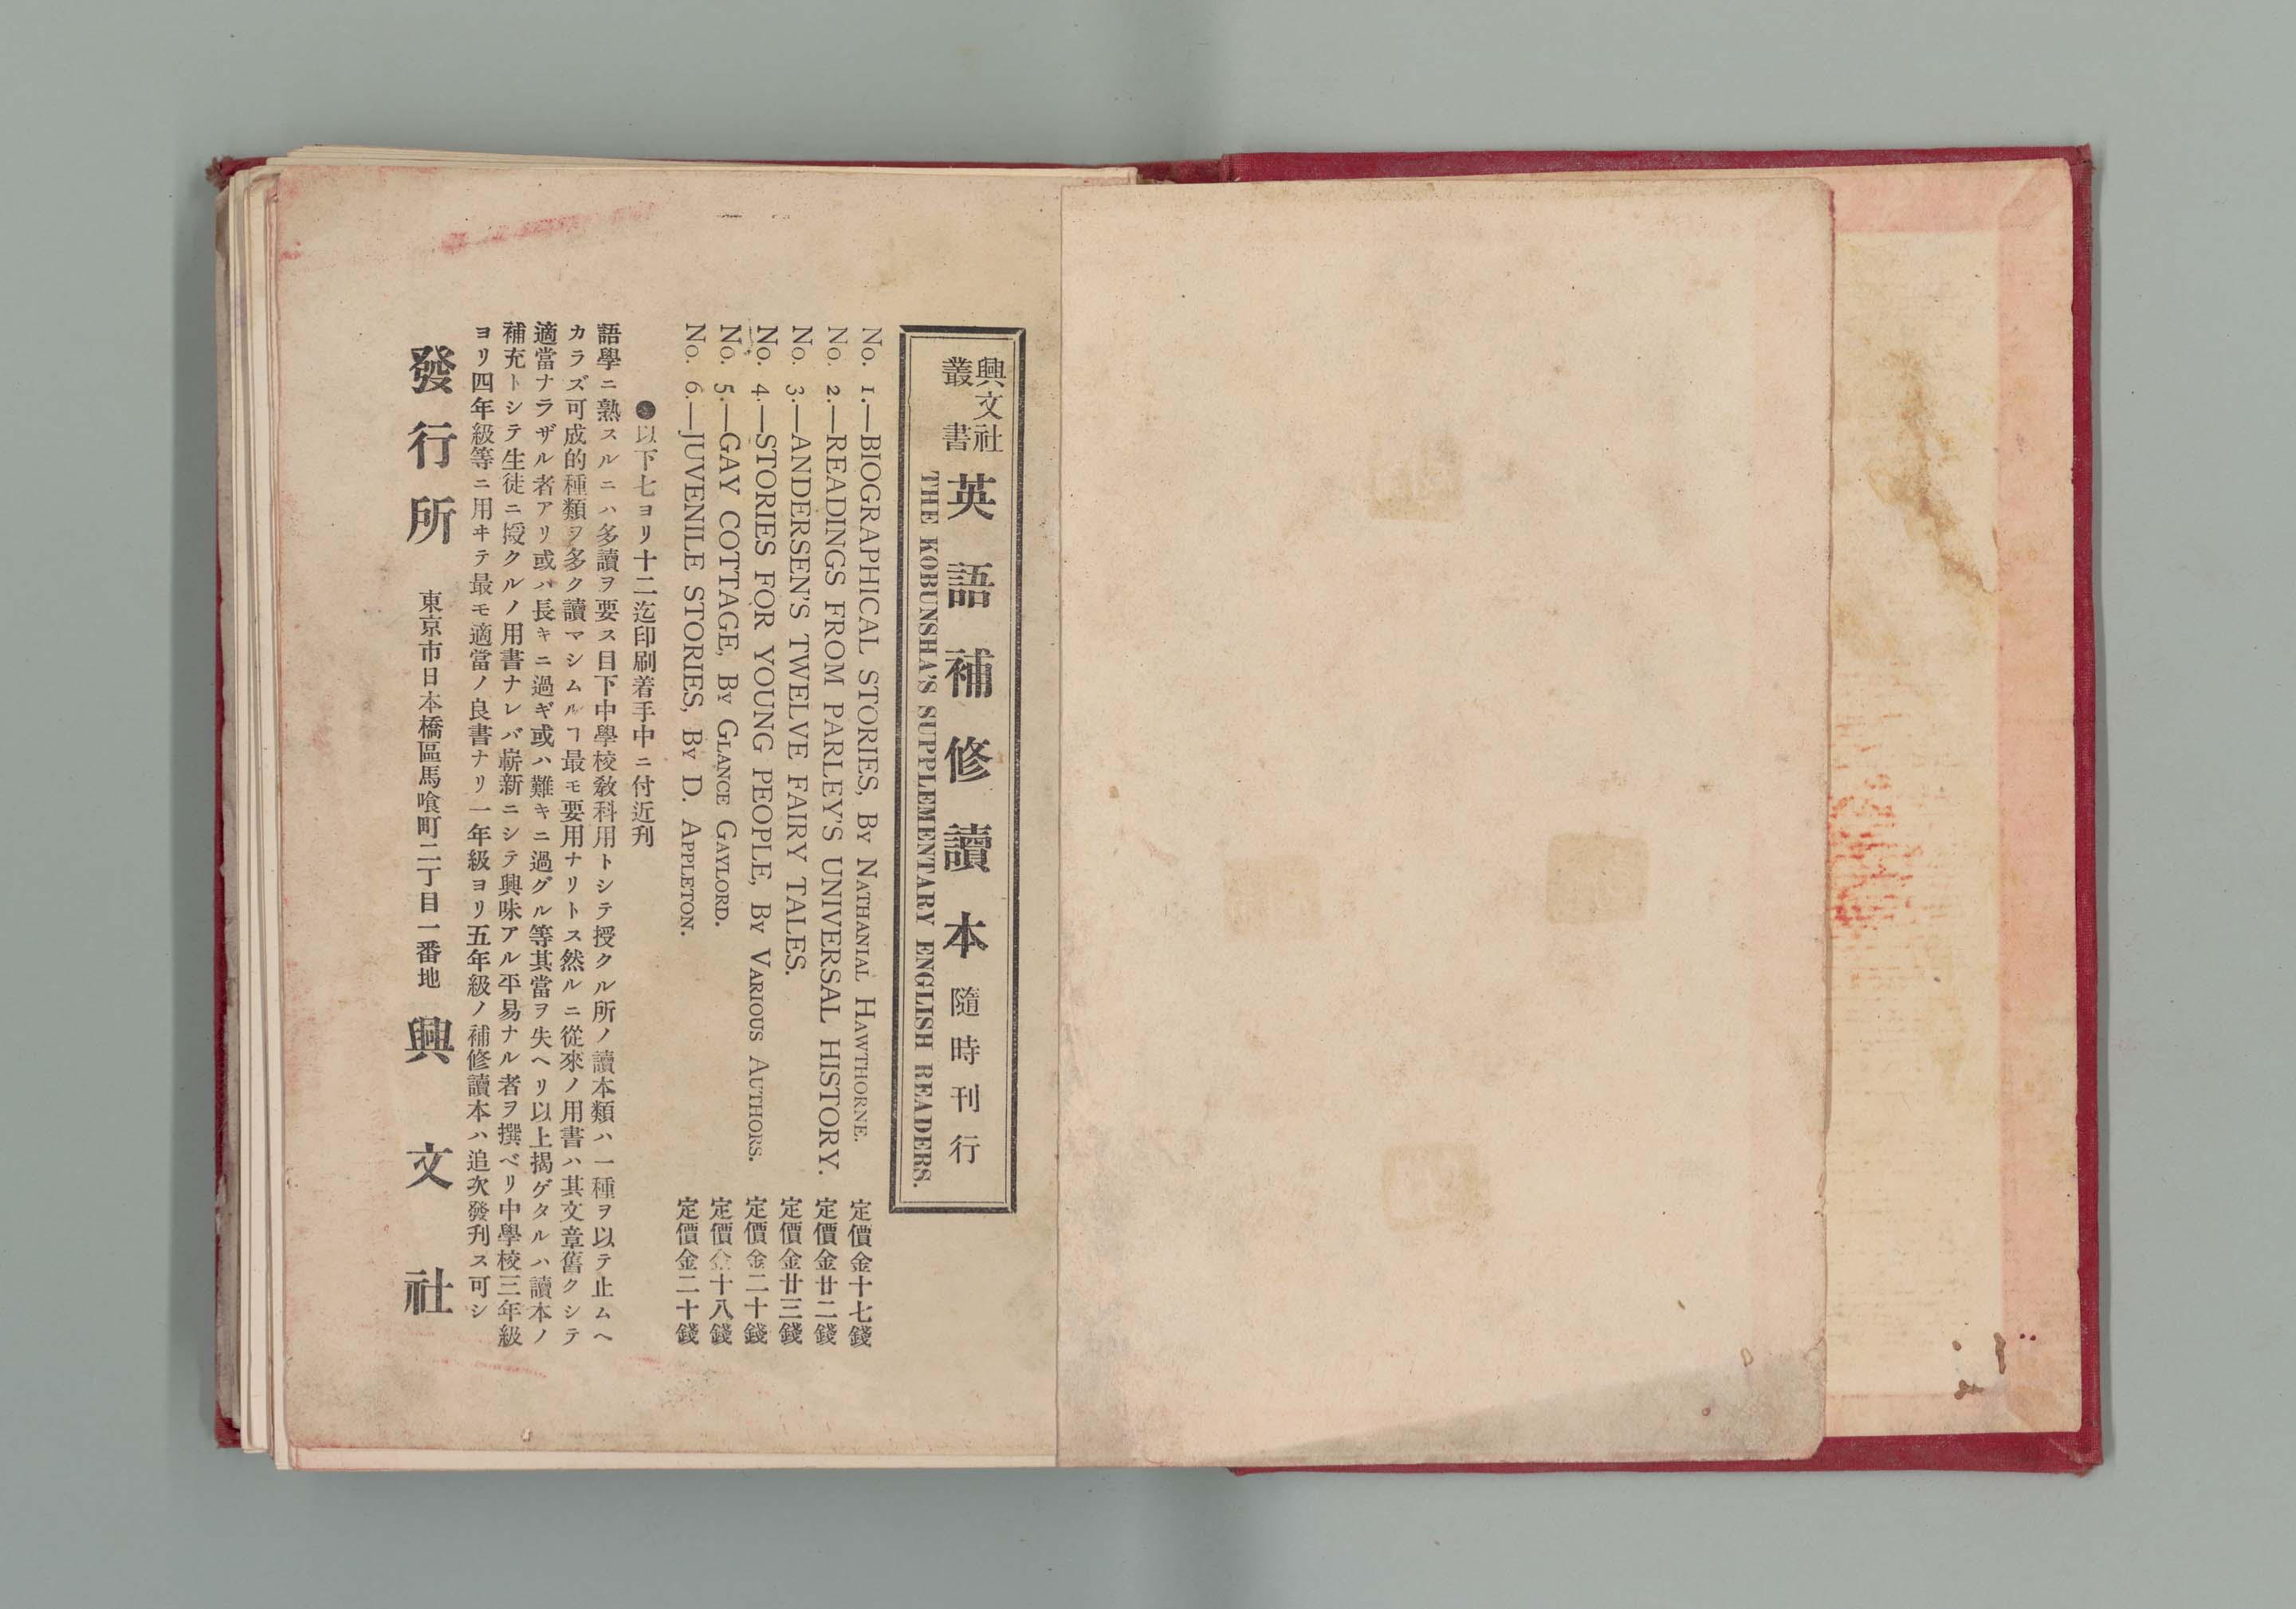 興文社叢書 英語補修讀本 隨時刊行
THE KOBUNSHA'S SUPPLEMENTARY ENGLISH READERS.
No. 1.—BIOGRAPHICAL STORIES, By Nathanial Hawthorne. 定價金十七錢
No. 2.—READINGS FROM PARLEY'S UNIVERSAL HISTORY. 定價金廿二錢
No. 3.—ANDERSEN'S TWELVE FAIRY TALES. 定價金廿三錢
No. 4.—STORIES FOR YOUNG PEOPLE, By Various Authors. 定價金二十錢
No. 5.—GAY COTTAGE, By Glance Gaylord. 定價金十八錢
No. 6.—JUVENILE STORIES, By D. Appleton. 定價金二十錢
●以下七ヨリ十二迄印刷着手中ニ付近刋
語學ニ熟スルニハ多讀ヲ要ス目下中學校敎科用トシテ授クル所ノ讀本類ハ一種ヲ以テ止ムヘ
カラズ可成的種類ヲ多ク讀マシムルヿ最モ要用ナリトス然ルニ從來ノ用書ハ其文章舊クシテ
適當ナラザル者アリ或ハ長キニ過ギ或ハ難キニ過グル等其當ヲ失ヘリ以上揭ゲタルハ讀本ノ
補充トシテ生徒ニ授クルノ用書ナレバ嶄新ニシテ興味アル平易ナル者ヲ撰ベリ中學校三年級
ヨリ四年級等ニ用ヰテ最モ適當ノ良書ナリ一年級ヨリ五年級ノ補修讀本ハ追次發刋ス可シ
發行所 東京市日本橋區馬喰町二丁目一番地 興文社